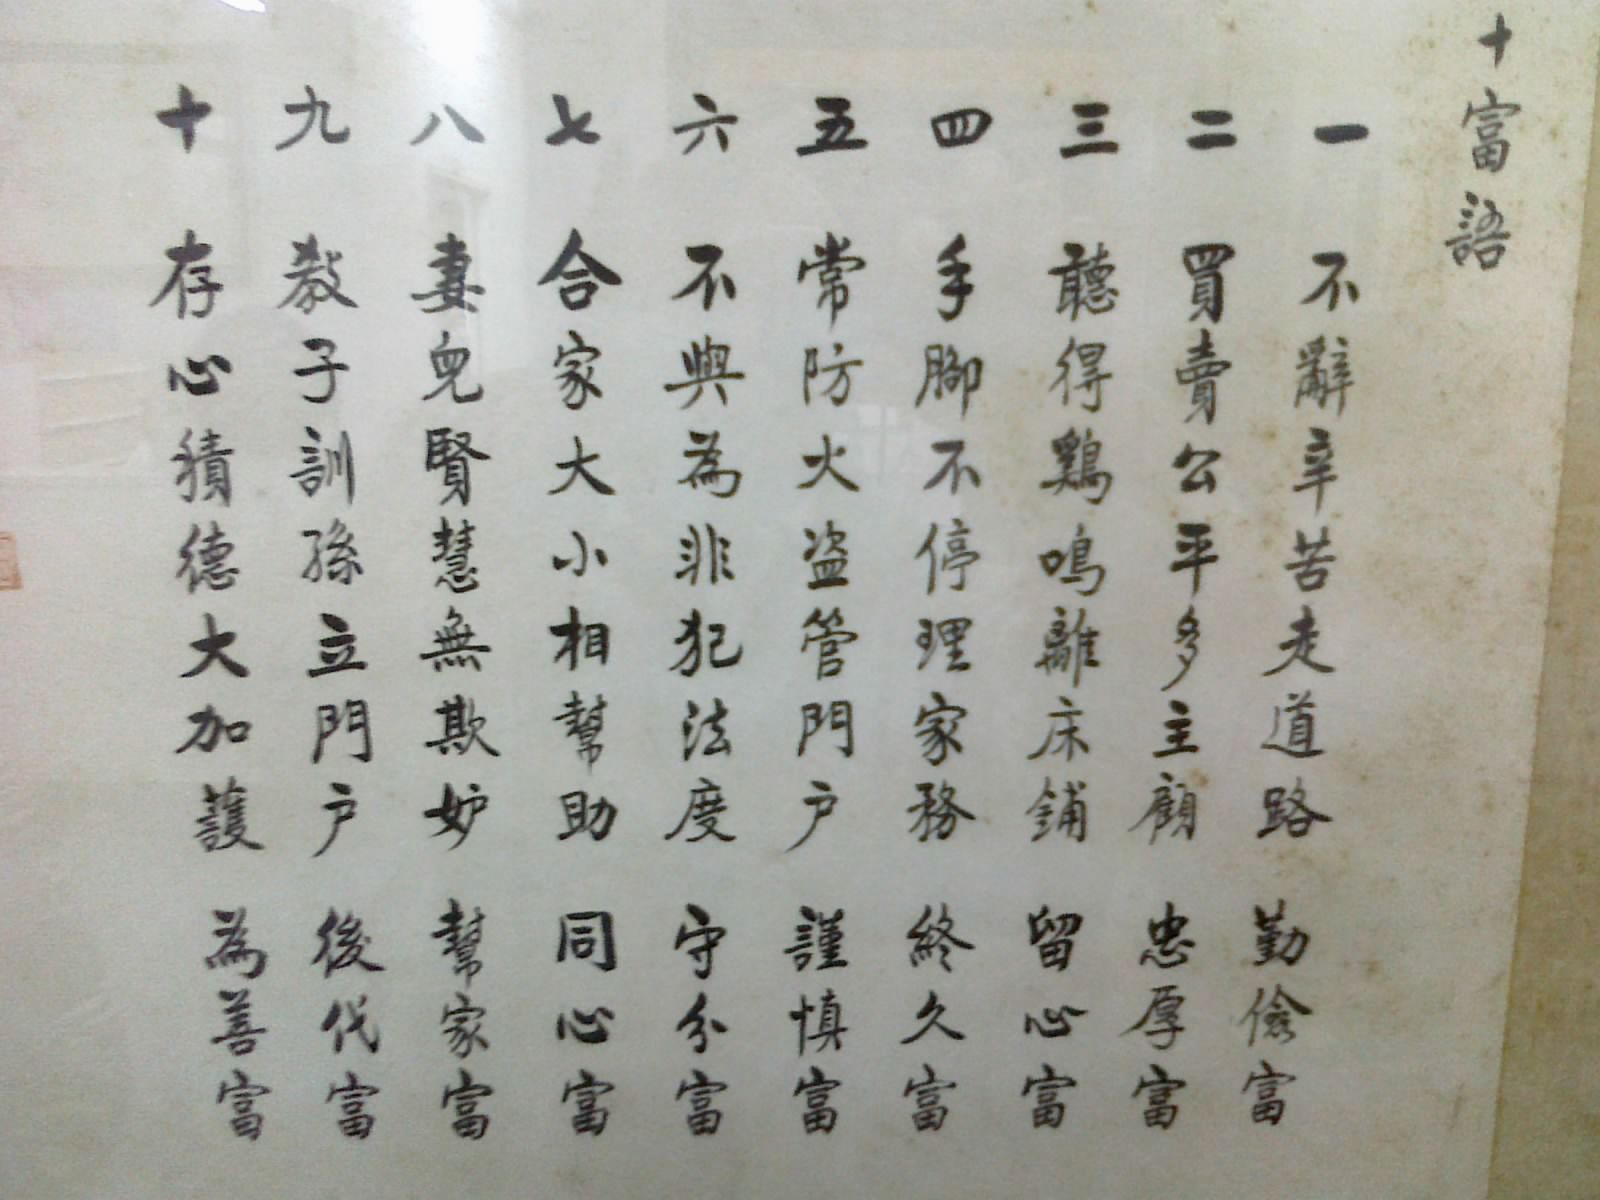 十富語
一 不辭辛苦走道路 勤儉富
二 買賣公平多主顧 忠厚富
三 聽得鷄鳴離床鋪 留心富
四 手腳不停理家務 終久富
五 常防火盗管門户 謹慎富
六 不與為非犯法度 守分富
七 合家大小相幫助 同心富
八 妻兒賢慧無欺妒 幫家富
九 教子訓孫立門户 後代富
十 存心積德大加護 為善富